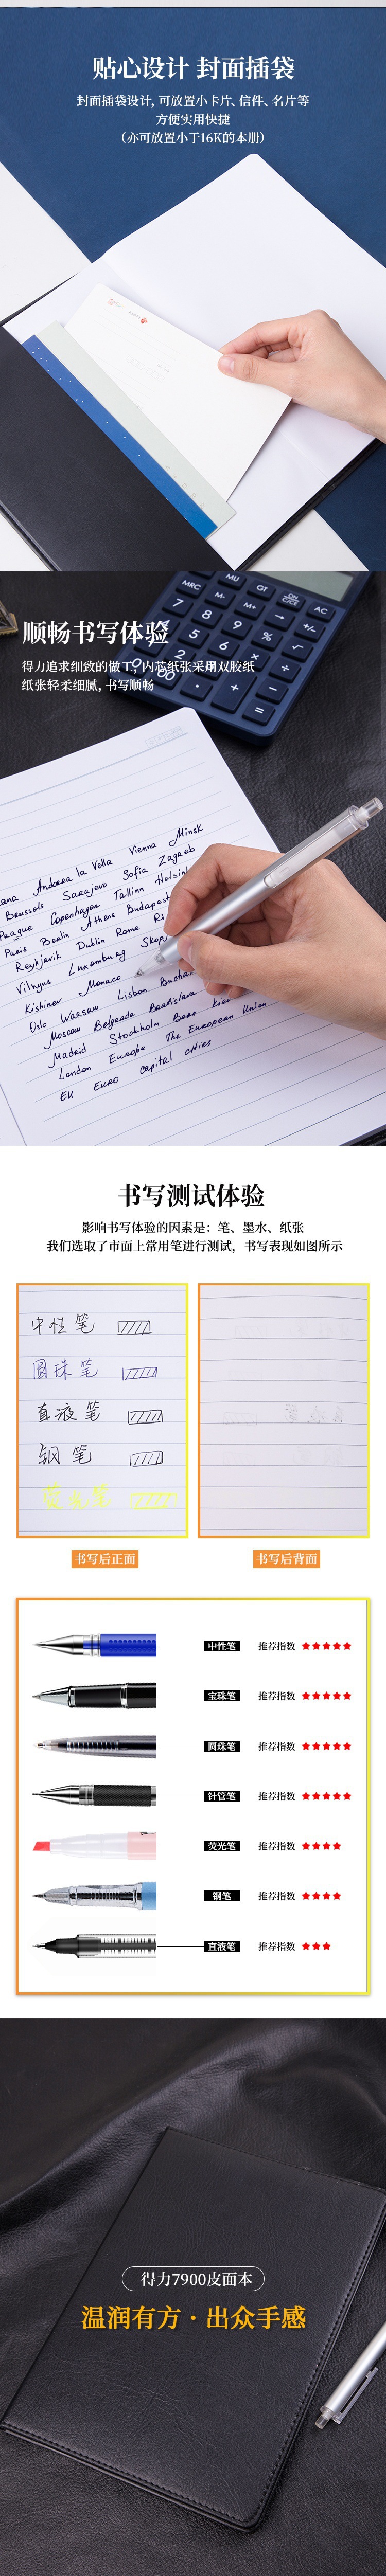 贴心设计 封面插袋
封面插袋设计, 可放置小卡片、信件、名片等
方便实用快捷
（亦可放置小于16K的本册）
MRC
MU
GT
ON
C/CE
AC
M-
M+
→
+/-
7
8
9
%
√
4
5
6
×
÷
1
2
3
+
-
顺畅书写体验
得力追求细致的做工, 内芯纸张采用双胶纸
纸张轻柔细腻, 书写顺畅
ana Andorra la Vella Vienna Minsk
Brussels Sarajevo Sofia Zagreb
Prague Copenhagen Tallinn Helsin
Paris Berlin Athens Budapest
Reykjavik Dublin Rome Ri
Vilnyus Luxemburg Skop
Kishinev Monaco
Oslo Warsaw Lisbon Bucha
Moscow Belgrade Bratislava
Madrid Stockholm Bern Kiev
London Europe The European Union
EU Euro capital cities
书写测试体验
影响书写体验的因素是：笔、墨水、纸张
我们选取了市面上常用笔进行测试，书写表现如图所示
中性笔
圆珠笔
直液笔
钢笔
荧光笔
书写后正面
书写后背面
中性笔 推荐指数 ★★★★★
宝珠笔 推荐指数 ★★★★★
圆珠笔 推荐指数 ★★★★★
针管笔 推荐指数 ★★★★★
荧光笔 推荐指数 ★★★★
钢笔 推荐指数 ★★★★
直液笔 推荐指数 ★★★
得力7900皮面本
温润有方 · 出众手感